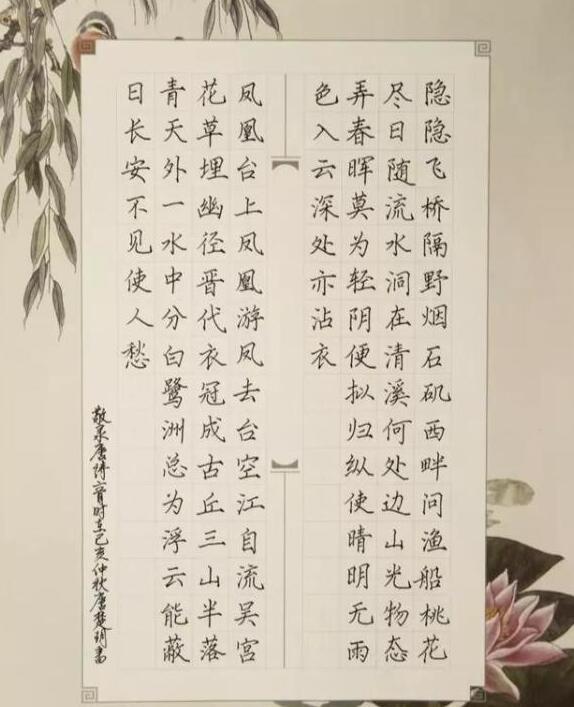 隐隐飞桥隔野烟石矶西畔问渔船桃花
尽日随流水洞在清溪何处边山光物态
弄春晖莫为轻阴便拟归纵使晴明无雨
色入云深处亦沾衣
凤凰台上凤凰游凤去台空江自流吴宫
花草埋幽径晋代衣冠成古丘三山半落
青天外一水中分白鹭洲总为浮云能蔽
日长安不见使人愁
敬录唐诗首时在己亥仲秋唐楚玥书